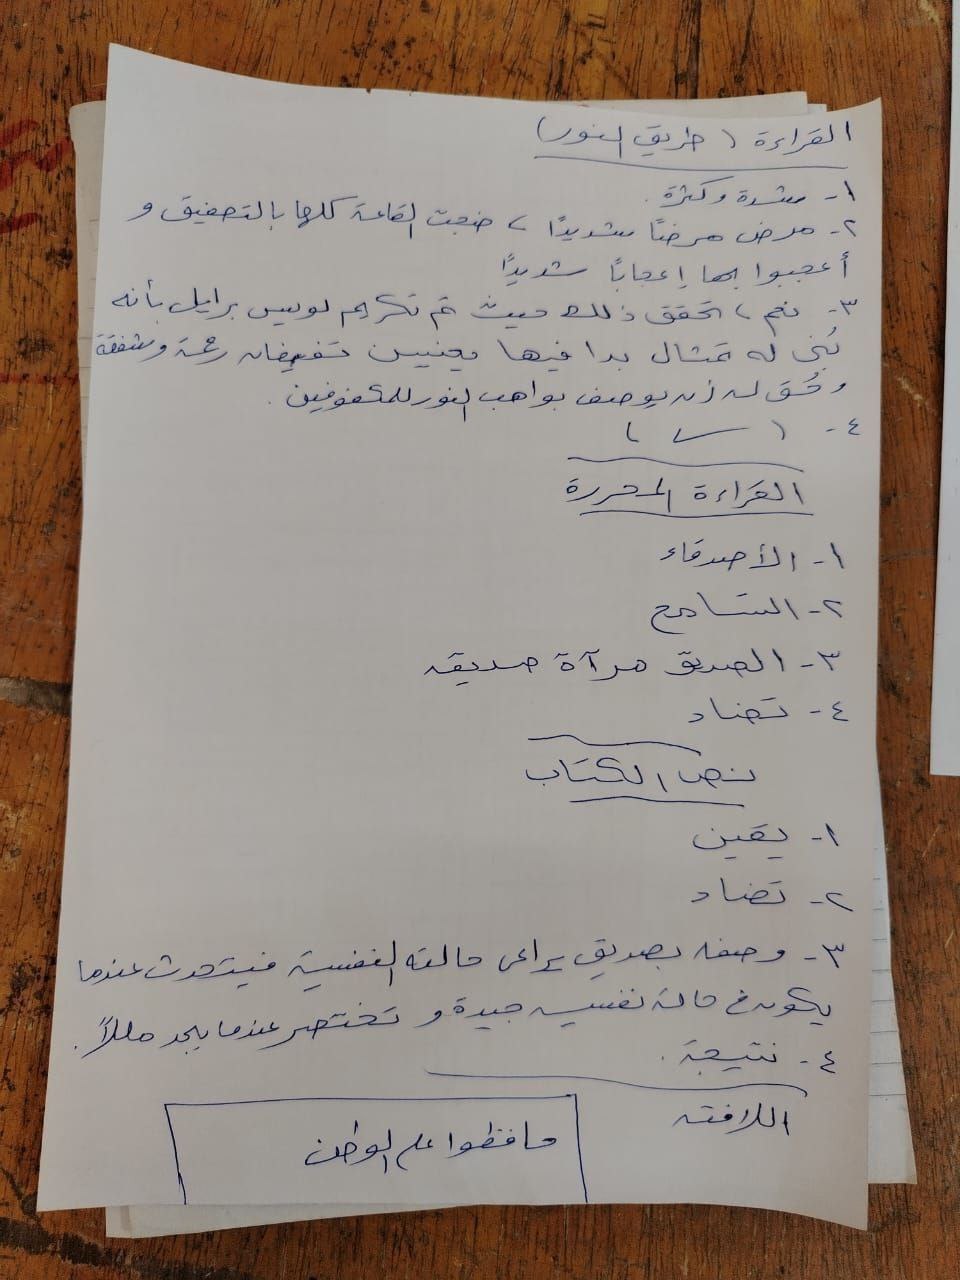 القراءة ( طريق النور )
١- شدة وكثرة .
٢- مرض مرضًا شديدًا ، ضجت القاعة كلها بالتصفيق و
أعجبوا بها إعجابًا شديدًا
٣- نعم ، تحقق ذلك حيث تم تكريم لويس برايل بأنه
بُني له تمثال بدا فيها بعينين تفيضان رحمة وشفقة
وحُق له أن يوصف بواهب النور للمكفوفين .
٤-
القراءة المحررة
١- الأصدقاء
٢- التسامح
٣- الصديق مرآة صديقه
٤- تضاد
نص الكتاب
١- يقين
٢- تضاد
٣- وصفه بصديق يراعى حالته النفسية فيتحدث عندما
يكون في حالة نفسيه جيدة و تختصر عندما يجد مللاً .
٤- نتيجة .
اللافته
حافظوا على الوطن